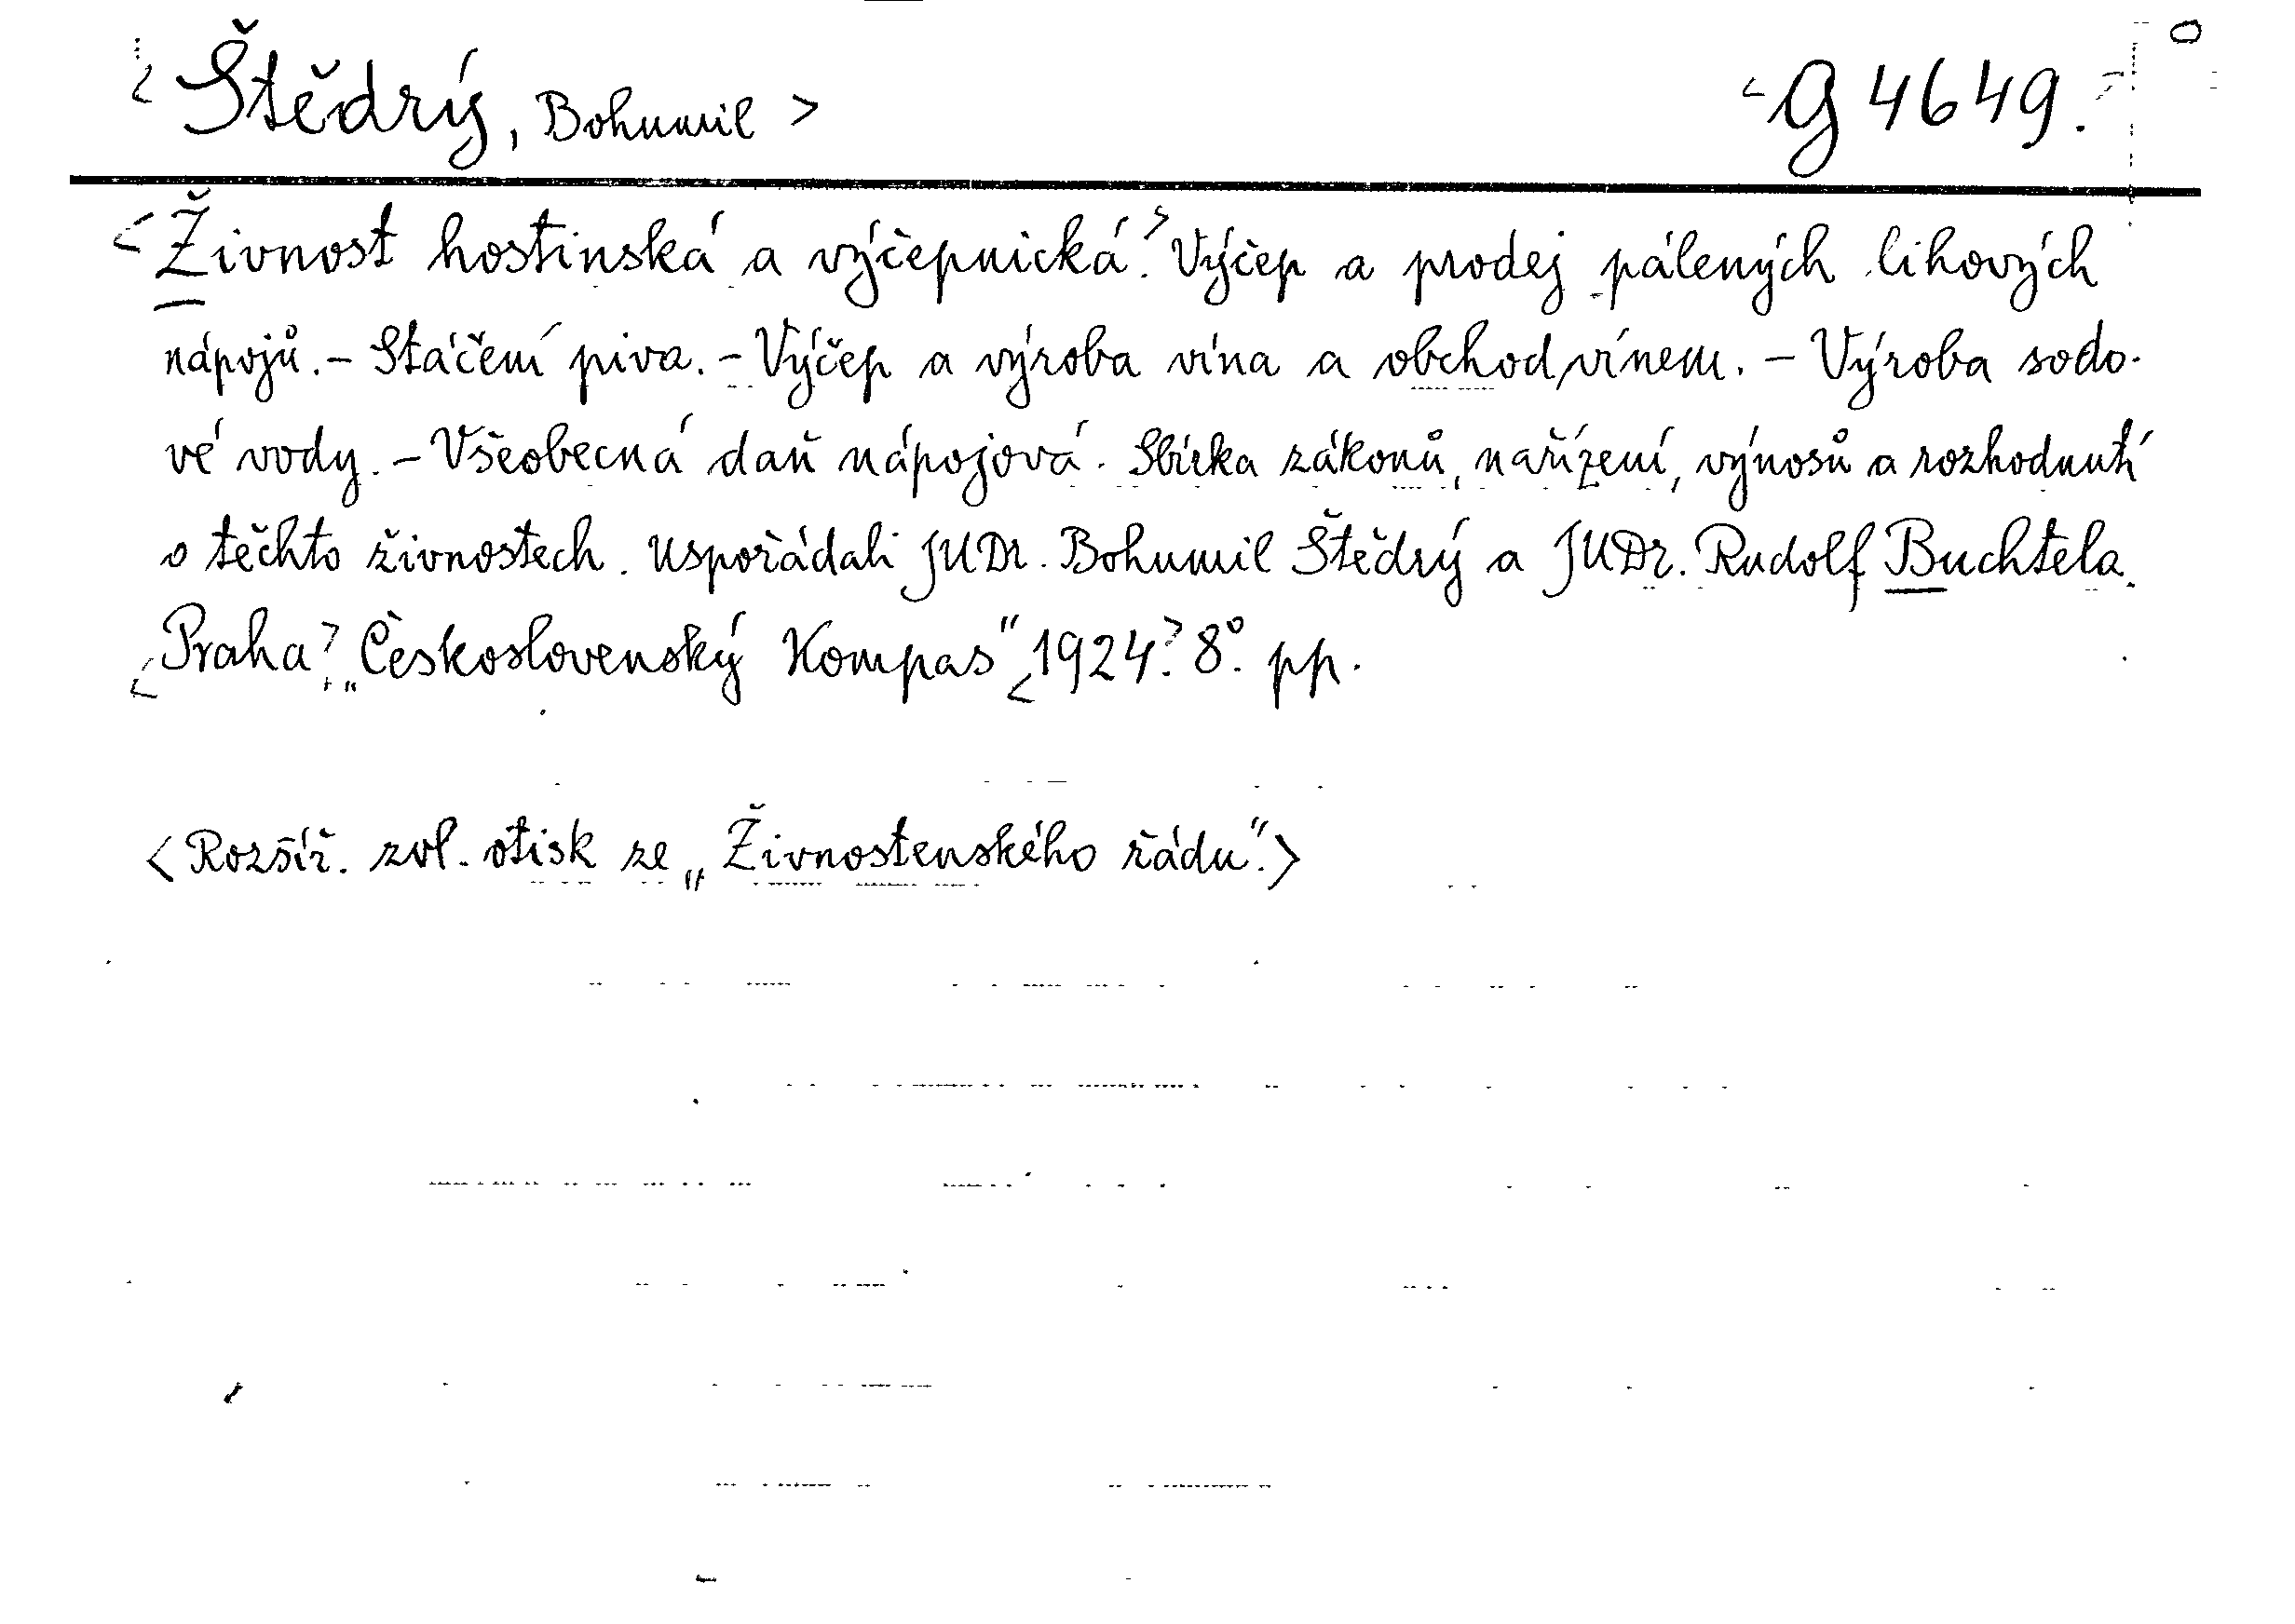 <Štědrý, Bohumil> <G 4649.>
<Živnost hostinská a výčepnická.> Výčep a prodej pálených lihových
nápojů. – Stáčení piva. – Výčep a výroba vína a obchod vínem. – Výroba sodo-
vé vody. – Všeobecná daň nápojová. Sbírka zákonů, nařízení, výnosů a rozhodnutí
o těchto živnostech. Uspořádali JUDr. Bohumil Štědrý a JUDr. Rudolf Buchtela.
<Praha>. „Československý Kompas“ <1924>. 8°. pp.
<Rozšíř. zvl. otisk ze „Živnostenského řádu“.>